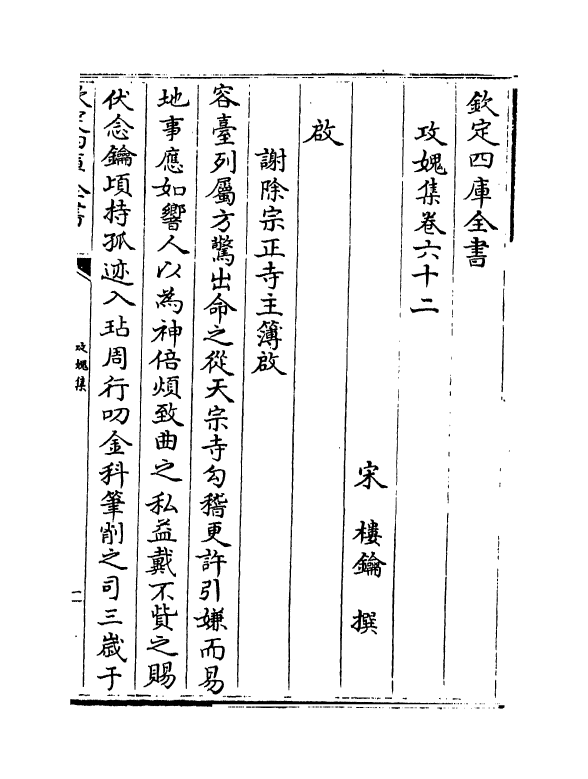 欽定四庫全書
攻媿集卷六十二
宋 樓鑰 撰
啟
謝除宗正寺主簿啟
容臺列屬方驚出命之從天宗寺勾稽更許引嫌而易
地事應如響人以為神倍煩致曲之私益戴不貲之賜
伏念鑰頃持孤迹入玷周行叨金科筆削之司三歲于
欽定四庫全書
攻媿集
一